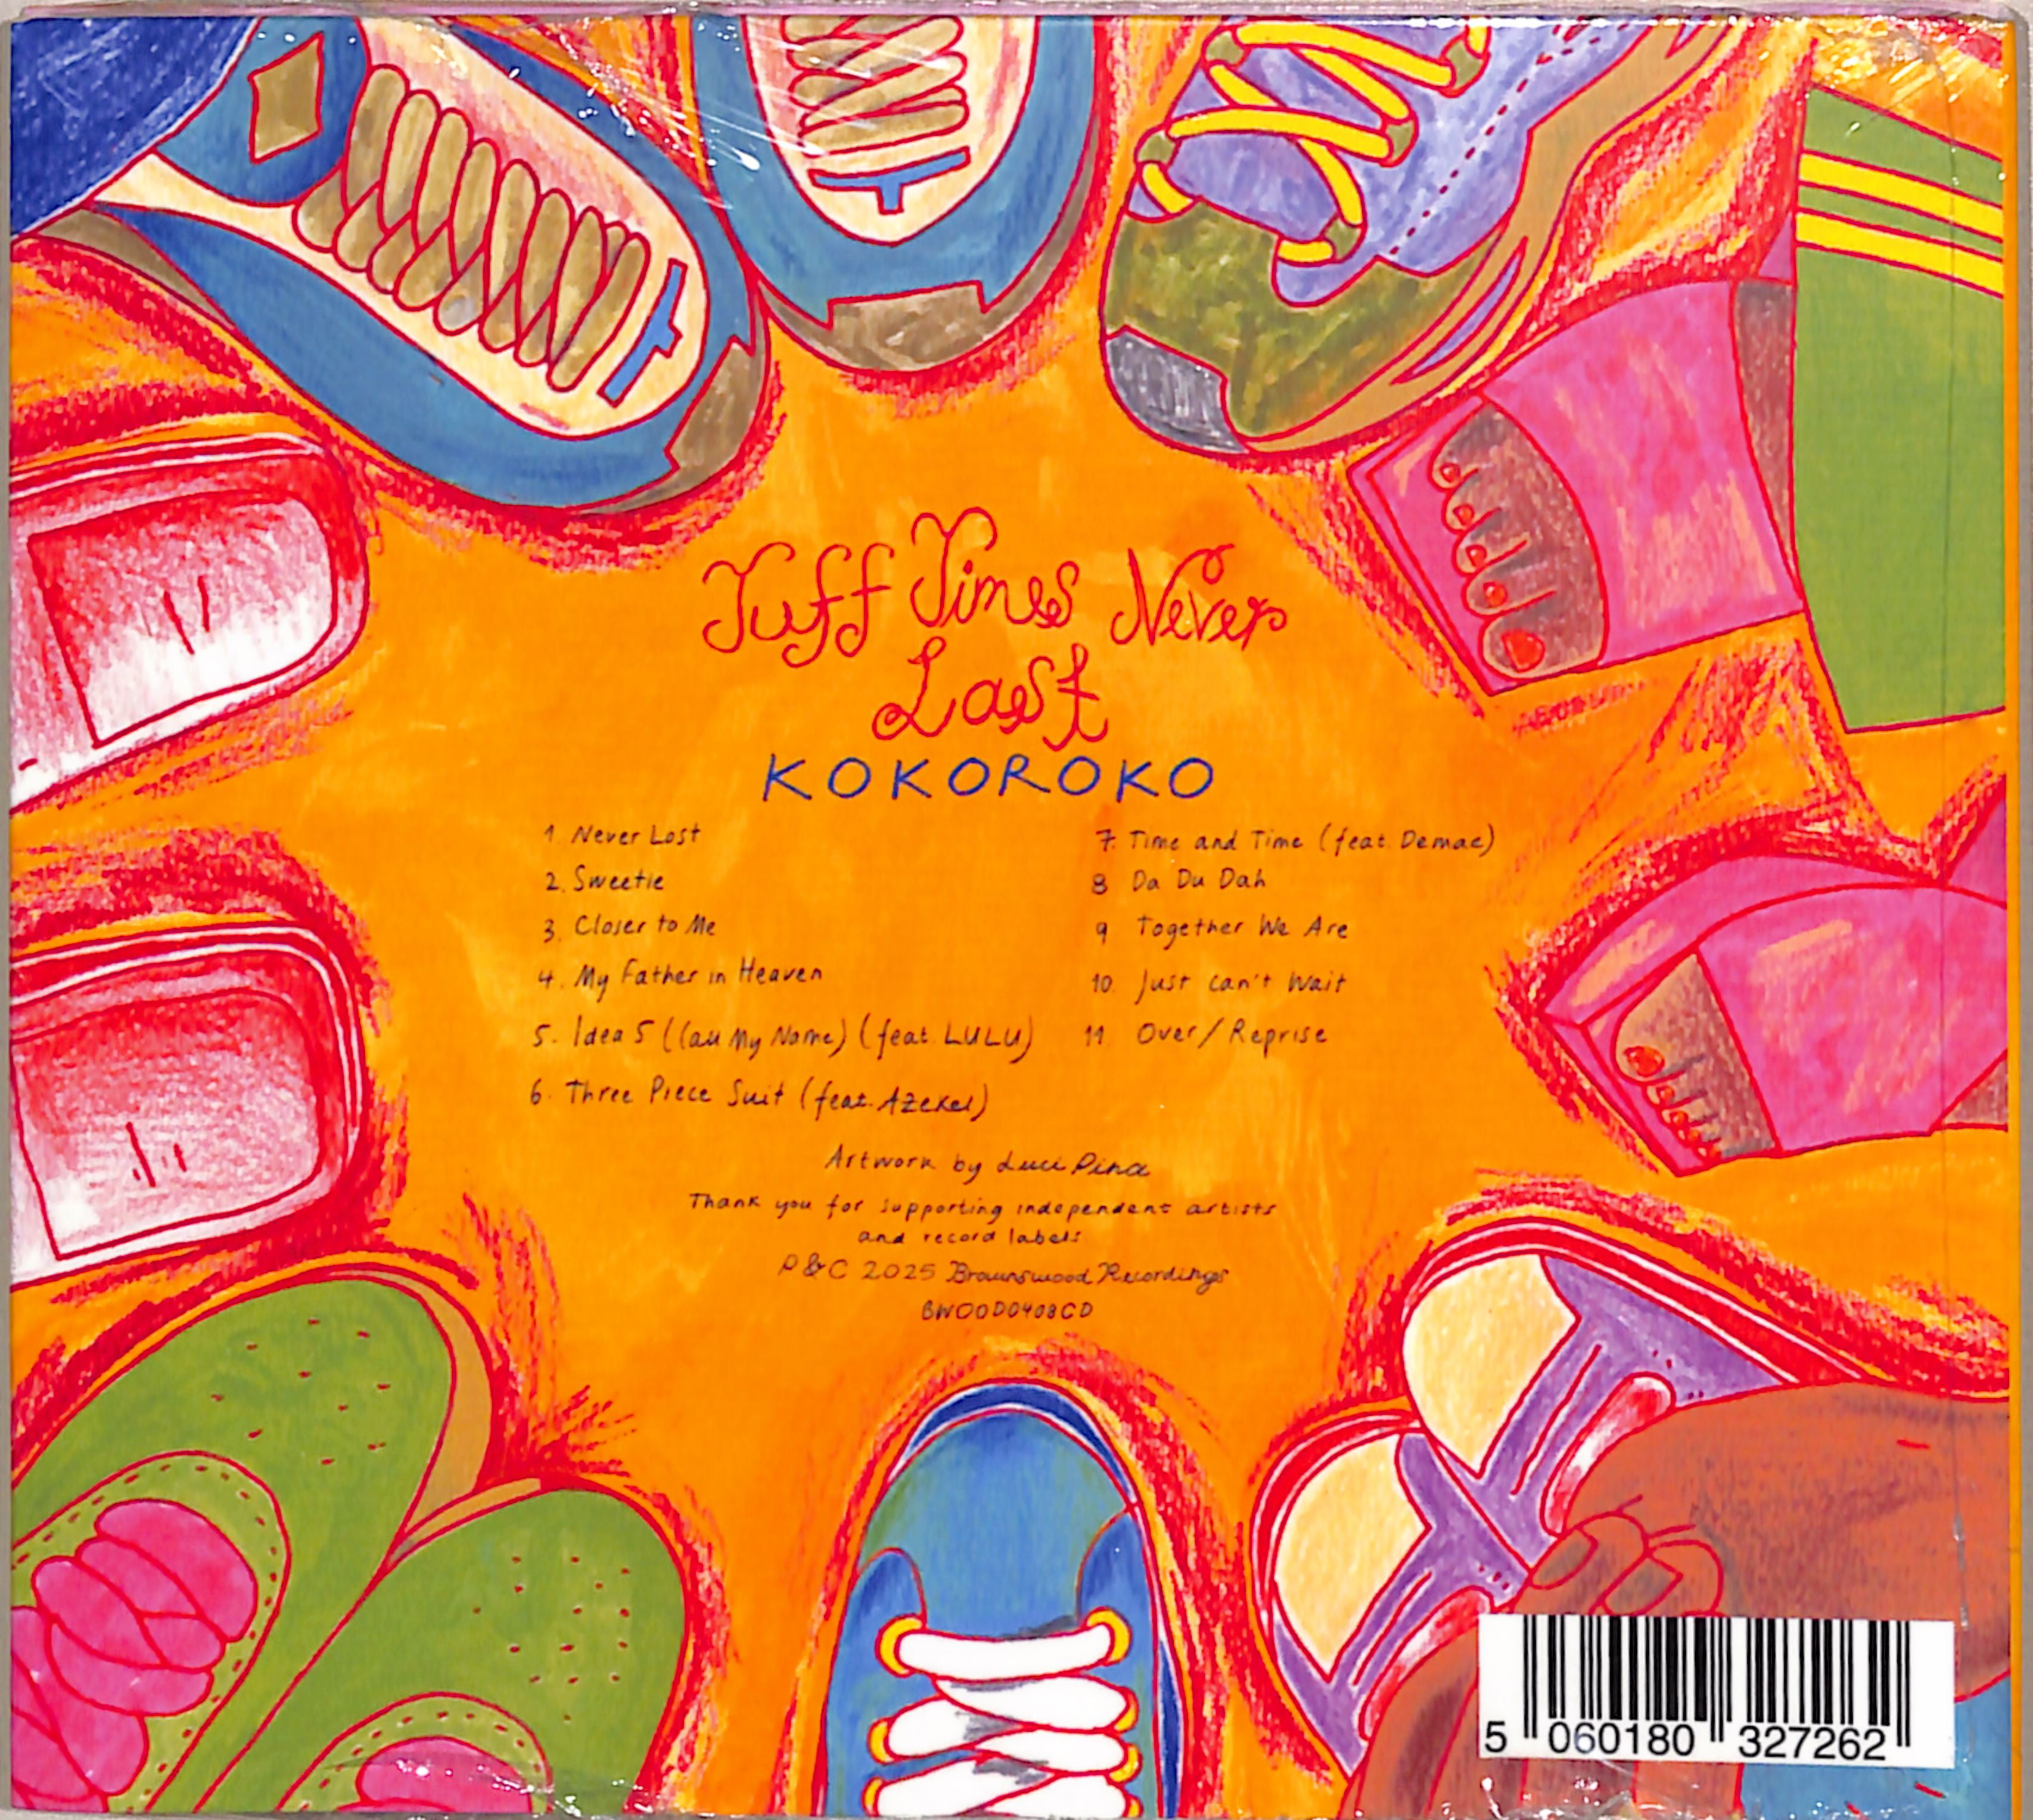 Tuff Times Never
Last
KOKOROKO
1 Never Lost
2. Sweetie
3. Closer to Me
4. My Father in Heaven
5. Idea 5 (Call My Name) (feat. LULU)
6. Three Piece Suit (feat. Azekel)
7. Time and Time (feat. Demae)
8 Da Du Dah
9 Together We Are
10. Just can't Wait
11. Over/Reprise
Artwork by Luci Pina
Thank you for supporting independent artists
and record labels
P & C 2025 Brownswood Recordings
BWOOD0408CD
5 060180 327262